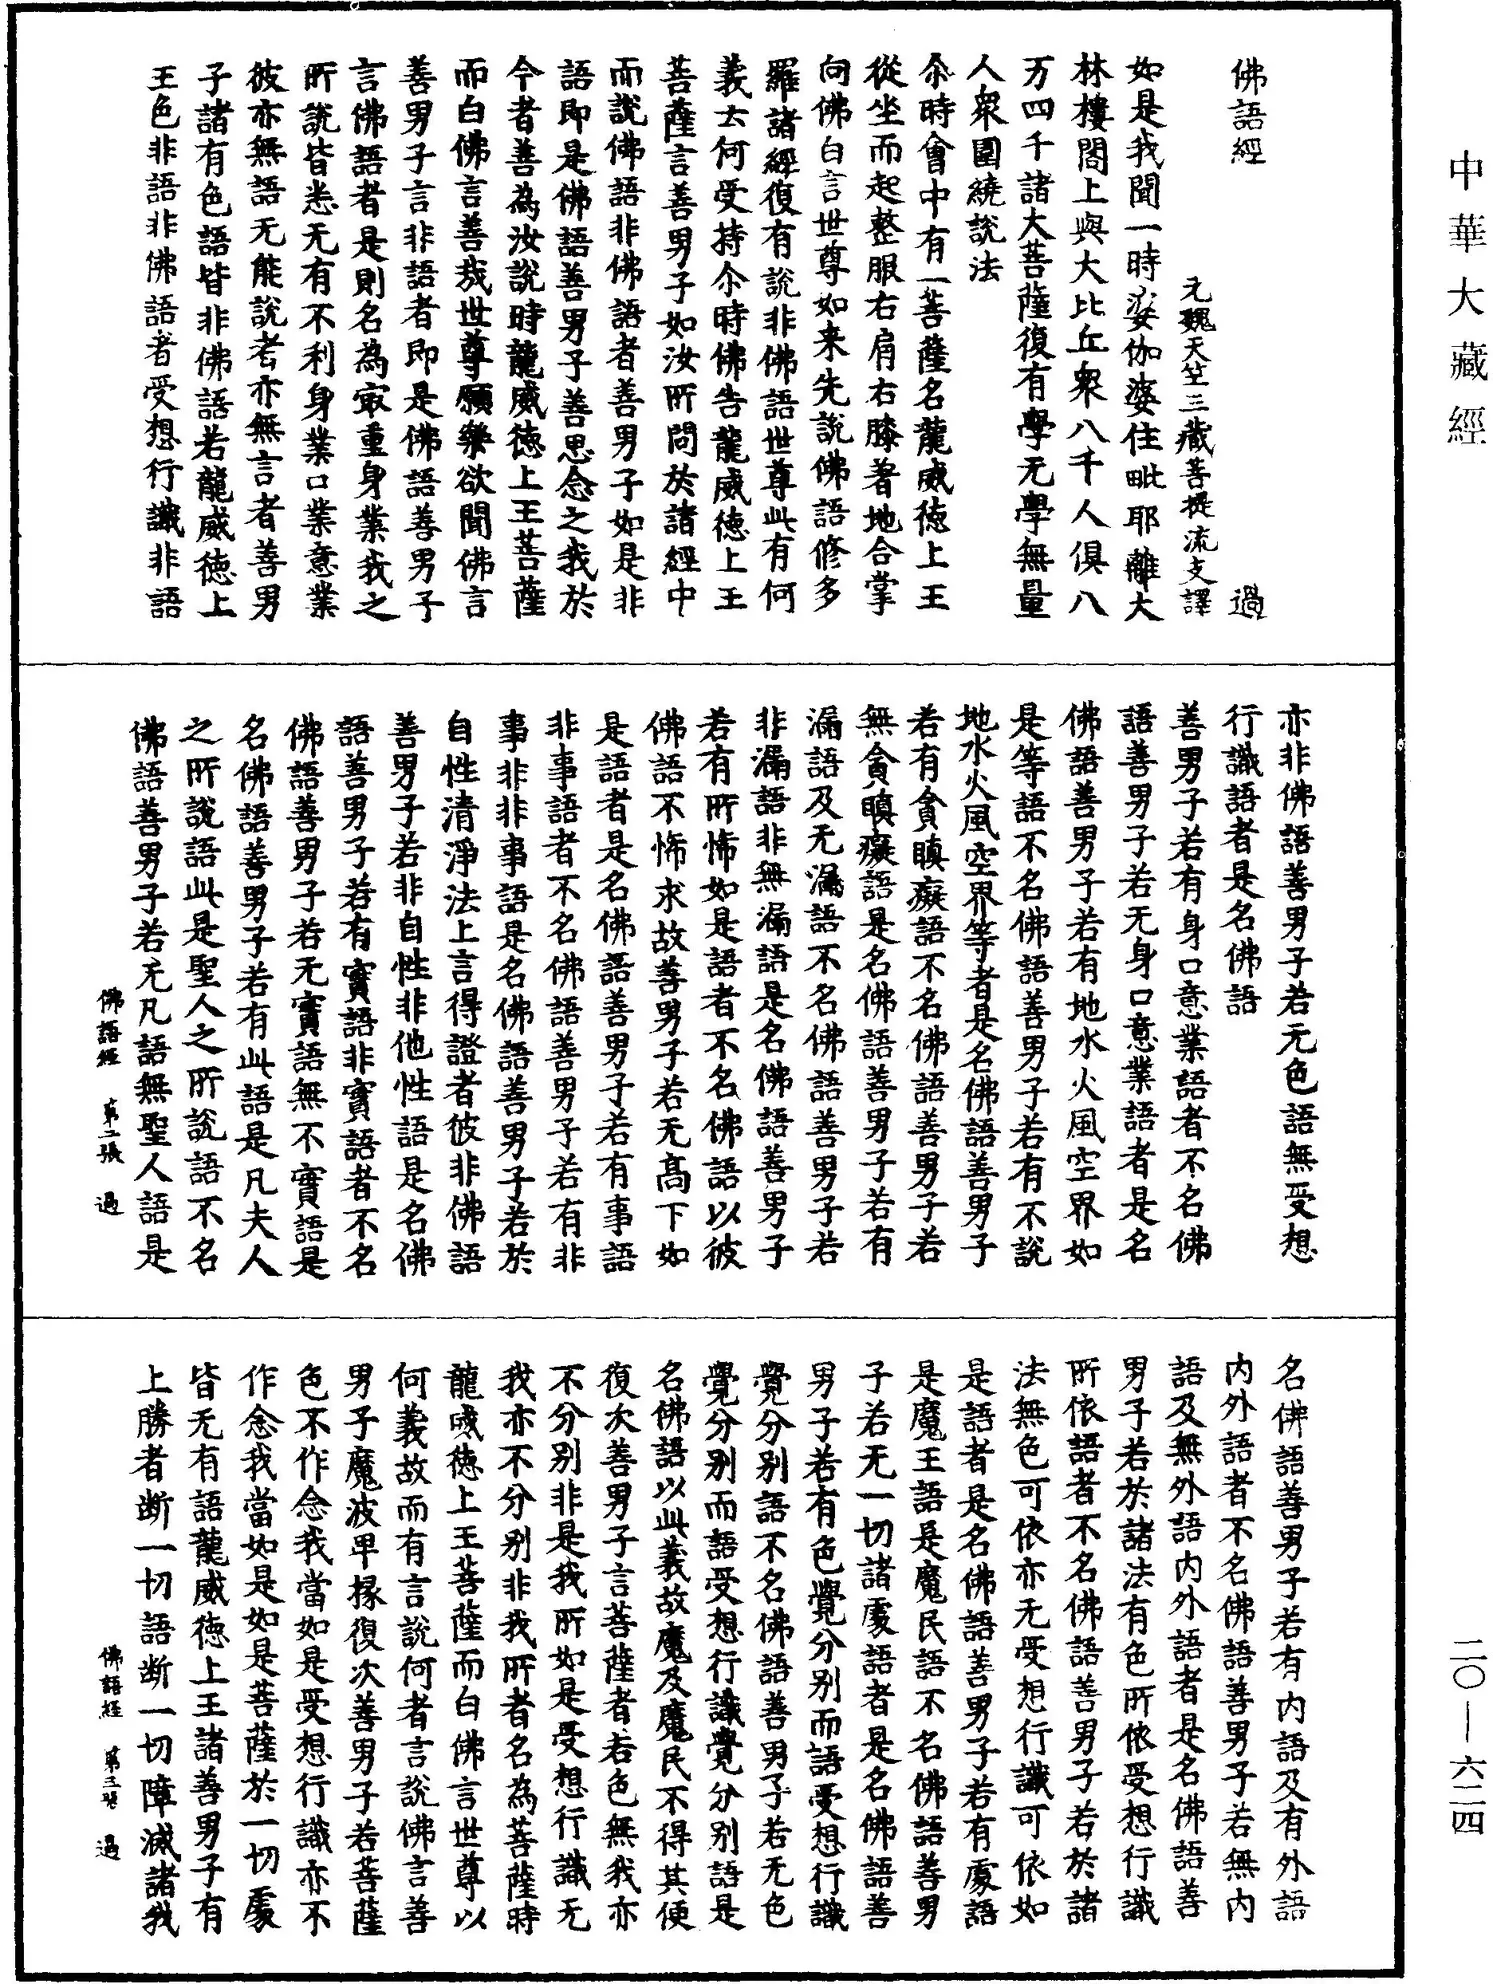 中華大藏經
二〇—六二四
佛語經　過
元魏天竺三藏菩提流支譯
如是我聞一時婆伽婆住毗耶離大
林樓閣上與大比丘衆八千人俱八
万四千諸大菩薩復有學无學無量
人衆圍繞說法
尒時會中有一菩薩名龍威德上王
從坐而起整服右肩右膝著地合掌
向佛白言世尊如来先說佛語修多
羅諸經復有說非佛語世尊此有何
義云何受持尒時佛告龍威德上王
菩薩言善男子如汝所問於諸經中
而說佛語非佛語者善男子如是非
語即是佛語善男子善思念之我於
今者善為汝說時龍威德上王菩薩
而白佛言善哉世尊願樂欲聞佛言
善男子言非語者即是佛語善男子
言佛語者是則名為㝡重身業我之
所說皆悉无有不利身業口業意業
彼亦無語无能說者亦無言者善男
子諸有色語皆非佛語若龍威德上
王色非語非佛語者受想行識非語
亦非佛語善男子若无色語無受想
行識語者是名佛語
善男子若有身口意業語者不名佛
語善男子若无身口意業語者是名
佛語善男子若有地水火風空界如
是等語不名佛語善男子若有不說
地水火風空界等者是名佛語善男子
若有貪瞋癡語不名佛語善男子若
無貪瞋癡語是名佛語善男子若有
漏語及无漏語不名佛語善男子若
非漏語非無漏語是名佛語善男子
若有所怖如是語者不名佛語以彼
佛語不怖求故善男子若无高下如
是語者是名佛語善男子若有事語
非事語者不名佛語善男子若有非
事非非事語是名佛語善男子若於
自性清淨法上言得證者彼非佛語
善男子若非自性非他性語是名佛
語善男子若有實語非實語者不名
佛語善男子若无實語無不實語是
名佛語善男子若有此語是凡夫人
之所說語此是聖人之所說語不名
佛語善男子若无凡語無聖人語是
佛語經　第二張　過
名佛語善男子若有内語及有外語
内外語者不名佛語善男子若無内
語及無外語内外語者是名佛語善
男子若於諸法有色所依受想行識
所依語者不名佛語善男子若於諸
法無色可依亦无受想行識可依如
是語者是名佛語善男子若有處語
是魔王語是魔民語不名佛語善男
子若无一切諸處語者是名佛語善
男子若有色覺分別而語受想行識
覺分別語不名佛語善男子若无色
覺分別而語受想行識覺分別語是
名佛語以此義故魔及魔民不得其便
復次善男子言菩薩者若色無我亦
不分別非是我所如是受想行識无
我亦不分別非我所者名為菩薩時
龍威德上王菩薩而白佛言世尊以
何義故而有言說何者言說佛言善
男子魔波卑掾復次善男子若菩薩
色不作念我當如是受想行識亦不
作念我當如是如是菩薩於一切處
皆无有語龍威德上王諸善男子有
上勝者断一切語断一切障滅諸我
佛語經　第三張　過